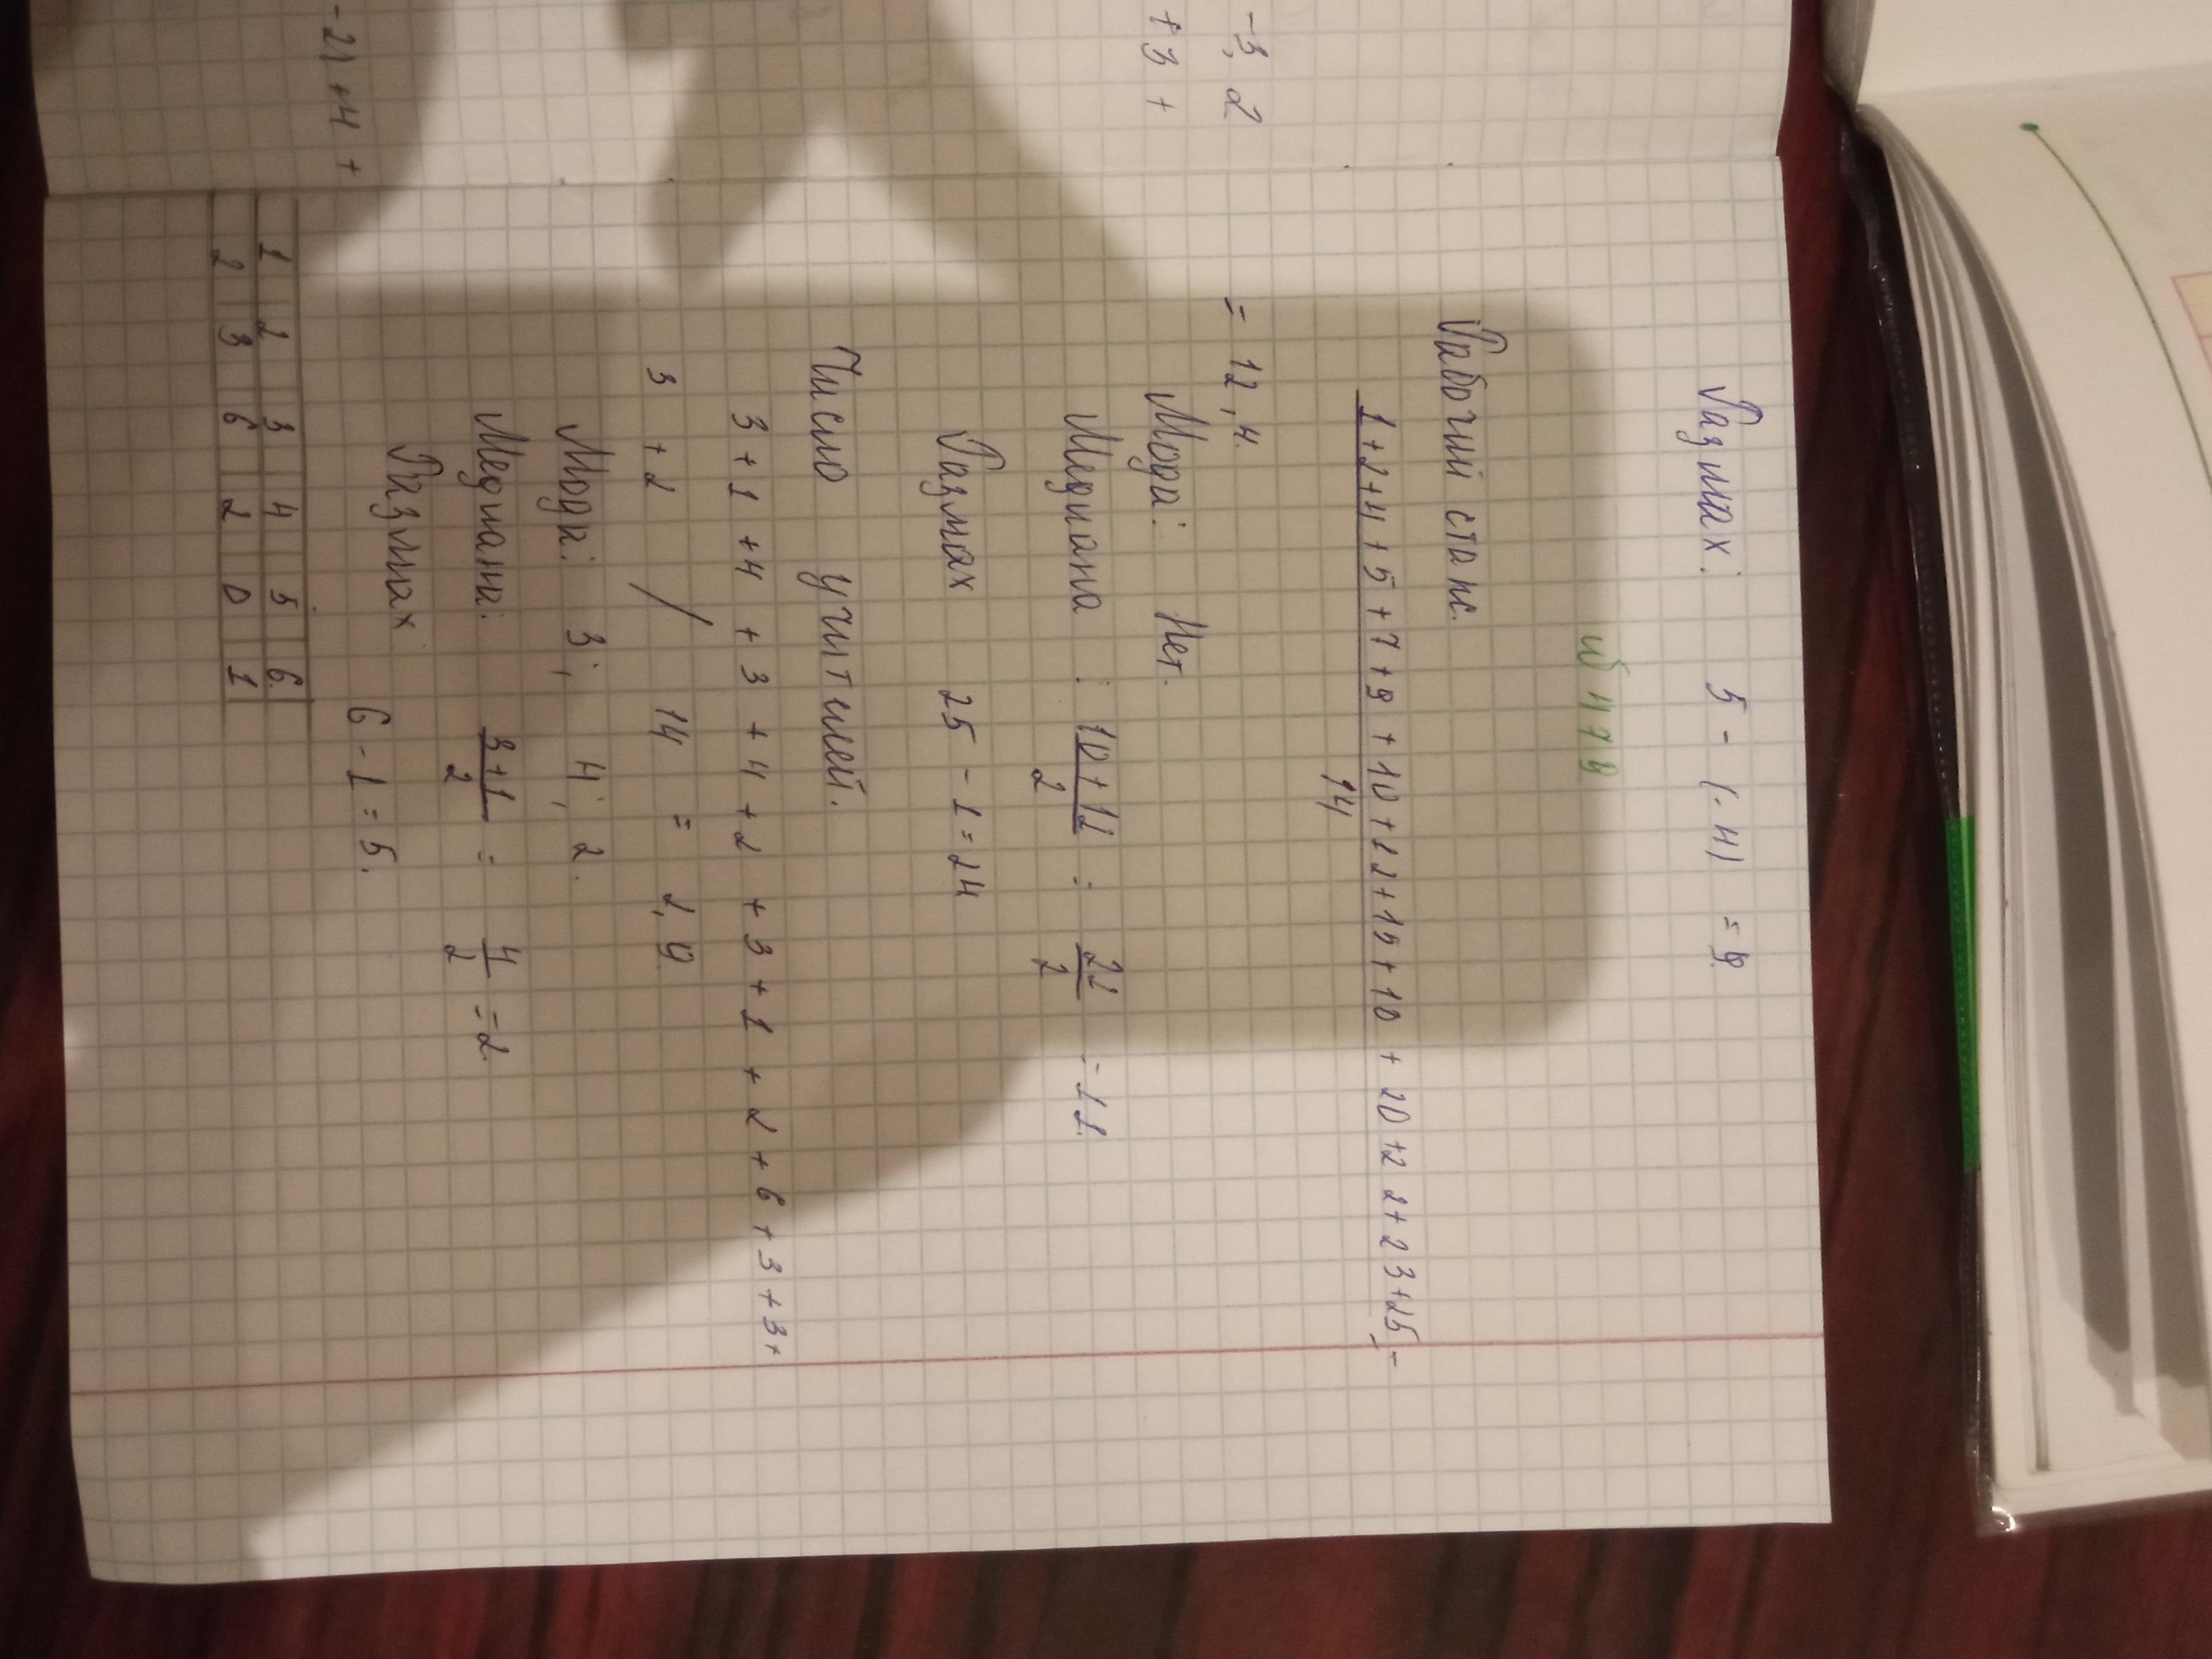 Размах: 5 - (-4) = 9
№ 479
Рабочий стаж.
1 + 2 + 4 + 5 + 7 + 9 + 10 + 12 + 15 + 10 + 20 + 22 + 23 + 25 -
14
-3, 2
= 12,4.
+3 +
Мода: Нет.
Медиана : 10 + 12 = 22 = 11.
2 2
Размах 25 - 1 = 24
Число учителей.
3 + 1 + 4 + 3 + 4 + 2 + 3 + 1 + 2 + 6 + 3 + 3 +
3 + 2 / 14 = 2,9.
Мода: 3; 4; 2.
Медиана: 3+1 = 4 = 2.
2 2
Размах: 6 - 1 = 5.
-2) +4 +
1 2 3 4 5 6.
2 3 6 2 0 1